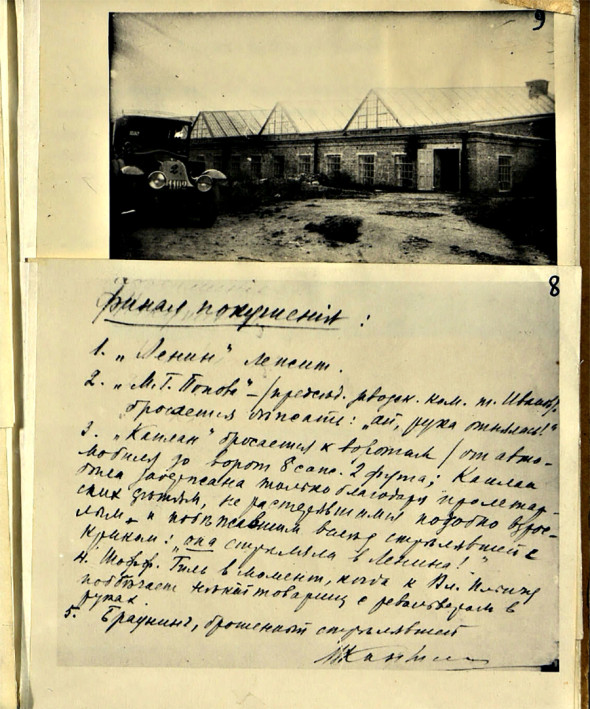 9
1102
8
Финал покушенія:
1. „Ленин“ лежит.
2. „М.Г. Попова“ – (предсѣд. заводск. ком. т. Иванов)
бросается бѣжать: „ой, рука отнялась!“
3. „Каплан“ бросается к воротам (от авто-
мобиля до ворот 8 саж. 2 фута; Каплан
была задержана только благодаря пролетар-
ским дѣтям, не растерявшимся подобно взрос-
лым и побѣжавшим вслѣд стрѣлявшей с
криком: „она стрѣляла в Ленина!“
4. Шофф. Гиль в момент, когда к Вл. Ильичу
подбѣгает нѣкий товарищ с револьвером в
руках.
5. Браунинг, брошенный стрѣлявшей